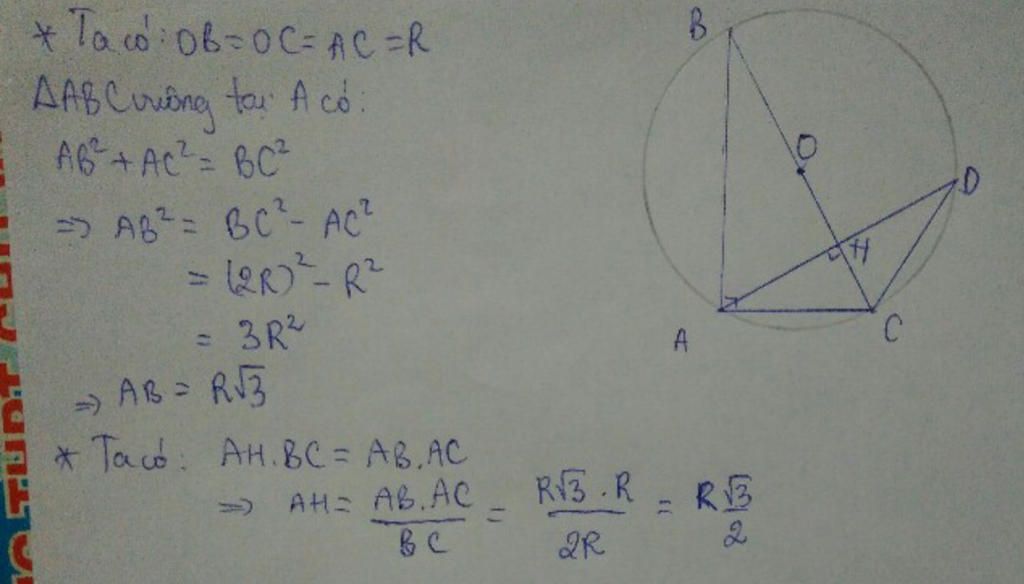 * Ta có: OB = OC = AC = R
ΔABC vuông tại A có:
AB² + AC² = BC²
=> AB² = BC² - AC²
= (2R)² - R²
= 3R²
=> AB = R√3
* Ta có: AH.BC = AB.AC
=> AH = AB.AC / BC = R√3 . R / 2R = R√3 / 2
B
O
D
H
A
C